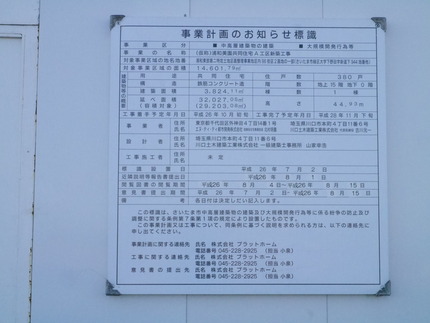 事業計画のお知らせ標識
事業区分 ■中高層建築物の建築 ■大規模開発行為等
事業の名称 (仮称)浦和美園共同住宅A工区新築工事
対象事業区域の地名地番
対象事業区域の面積 14,601.79㎡
用途 共同住宅 住戸数 380戸
構造 鉄筋コンクリート造 階数 地上15階 地下0階
建築面積 3,824.11㎡ 棟数 1棟
延べ面積 32,027.05㎡ 高さ 44.90m
工事着手予定年月日 平成26年10月初旬 工事完了予定年月日 平成28年11月下旬
事業者 住所 氏名
設計者 住所 埼玉県川口市本町4丁目11番6号
氏名 川口土木建築工業株式会社 一級建築士事務所
工事施工者 住所 氏名 未定
標識設置日 平成26年7月2日
近隣説明等報告書提出日 平成26年8月1日
閲覧図書の閲覧期間 平成26年8月4日~平成26年8月15日
意見書提出期間 平成26年7月2日~平成26年8月15日
備考 各日付は決定しだい記入します。
この標識は、さいたま市中高層建築物の建築及び大規模開発行為等に係る紛争の防止及び
調整に関する条例第7条第1項の規定により設置したものです。
この事業計画又は工事について、同条例に基づく説明を求められる方は、以下の連絡先に
申し出てください。
事業計画に関する連絡先 氏名 株式会社 プラットホーム
電話番号 045-228-2925 (担当 小泉)
工事に関する連絡先 氏名 株式会社 プラットホーム
電話番号 045-228-2925 (担当 小泉)
意見書の提出先 氏名 株式会社 プラットホーム
電話番号 045-228-2925 (担当 小泉)